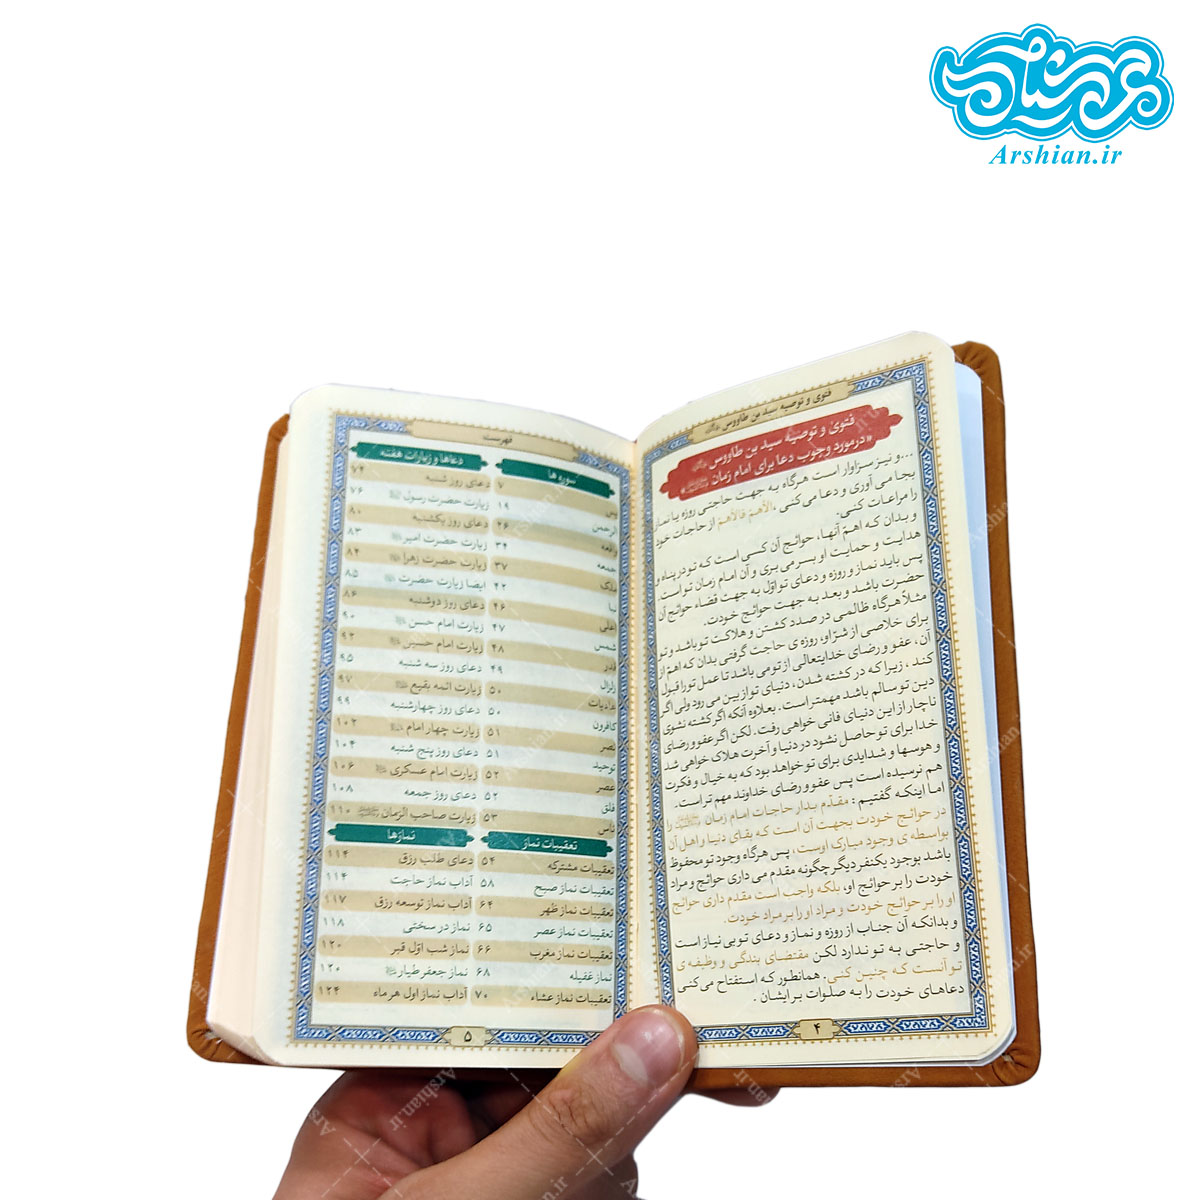 عرشیان
Arshian.ir
فتوی و توصیه سید بن طاووس
فتویٰ و توصیهٔ سید بن طاووس
«درمورد وجوب دعا برای امام زمان »
...و نیز سزاوار است هرگاه به جهت حاجتی روزه یا نماز
بجا می آوری و دعا می‌کنی ، الأهم فالأهم از حاجات خود
را مراعات کنی.
و بدان که اهم آنها، حوائج آن کسی است که تو در پناه و
هدایت و حمایت او بسر می بری و آن امام زمان تو است.
پس باید نماز و روزه و دعای تو اوّل به جهت قضاء حوائج آن
حضرت باشد و بعد به جهت حوائج خودت.
مثلاً هرگاه ظالمی در صدد کشتن و هلاکت تو باشد و تو
برای خلاصی از شر او، روزه ی حاجت گرفتی بدان که اهم از
آن، عفو و رضای خدایتعالی از تو می باشد تا عمل تو را قبول
کند ، زیرا که در کشته شدن، دنیای تو از بین می رود ولی اگر
دین تو سالم باشد مهمتر است. بعلاوه آنکه اگر کشته نشوی
ناچار از این دنیای فانی خواهی رفت. لکن اگر عفو و رضای
خدا برای تو حاصل نشود در دنیا و آخرت هلاک خواهی شد
و هوسها و شدایدی برای تو خواهد بود که به خیال و فکرت
هم نرسیده است پس عفو و رضای خداوند مهم تر است.
اما اینکه گفتیم : مقدّم بدار حاجات امام زمان را
در حوائج خودت بجهت آن است که بقای دنیا و اهل آن
بواسطه ی وجود مبارک اوست، پس هرگاه وجود تو محفوظ
باشد بوجود یکنفر دیگر چگونه مقدم می داری حوائج و مراد
خودت را بر حوائج او، بلکه واجب است مقدم داری حوائج
او را بر حوائج خودت و مراد او را بر مراد خودت.
و بدانکه آن جناب از روزه و نماز و دعای تو بی نیاز است
و حاجتی به تو ندارد لکن مقتضای بندگی و وظیفه ی
تو آنست که چنین کنی. همانطور که استفتاح می‌کنی
دعاهای خودت را به صلوات بر ایشان .
۴
فهرست
سوره ها
یس ۷
الرحمن ۱۹
واقعه ۲۶
جمعه ۳۴
ملک ۳۷
نبأ ۴۲
اعلی ۴۶
شمس ۴۷
قدر ۴۸
زلزال ۴۹
عادیات ۵۰
کافرون ۵۰
نصر ۵۱
توحید ۵۱
عصر ۵۲
فلق ۵۲
ناس ۵۳
تعقیبات نماز
تعقیبات مشترکه ۵۴
تعقیبات نماز صبح ۵۸
تعقیبات نماز ظهر ۶۴
تعقیبات نماز عصر ۶۵
تعقیبات نماز مغرب ۶۶
نماز غفیله ۶۸
تعقیبات نماز عشاء ۷۰
دعاها و زیارات هفته
دعای روز شنبه ۷۴
زیارت حضرت رسول ۷۶
دعای روز یکشنبه ۸۰
زیارت حضرت امیر ۸۳
زیارت حضرت زهرا ۸۴
ایضا زیارت حضرت ۸۵
دعای روز دوشنبه ۸۶
زیارت امام حسن ۹۰
زیارت امام حسین ۹۲
دعای روز سه شنبه ۹۵
زیارت ائمه بقیع ۹۷
دعای روز چهارشنبه ۹۹
زیارت چهار امام ۱۰۲
دعای روز پنج شنبه ۱۰۴
زیارت امام عسکری ۱۰۶
دعای روز جمعه ۱۰۸
زیارت صاحب الزمان ۱۱۰
نمازها
دعای طلب رزق ۱۱۴
آداب نماز حاجت ۱۱۴
آداب نماز توسعه رزق ۱۱۷
نماز در سختی ۱۱۸
نماز شب اوّل قبر ۱۲۰
نماز جعفر طیار ۱۲۰
آداب نماز اول هر ماه ۱۲۴
۵